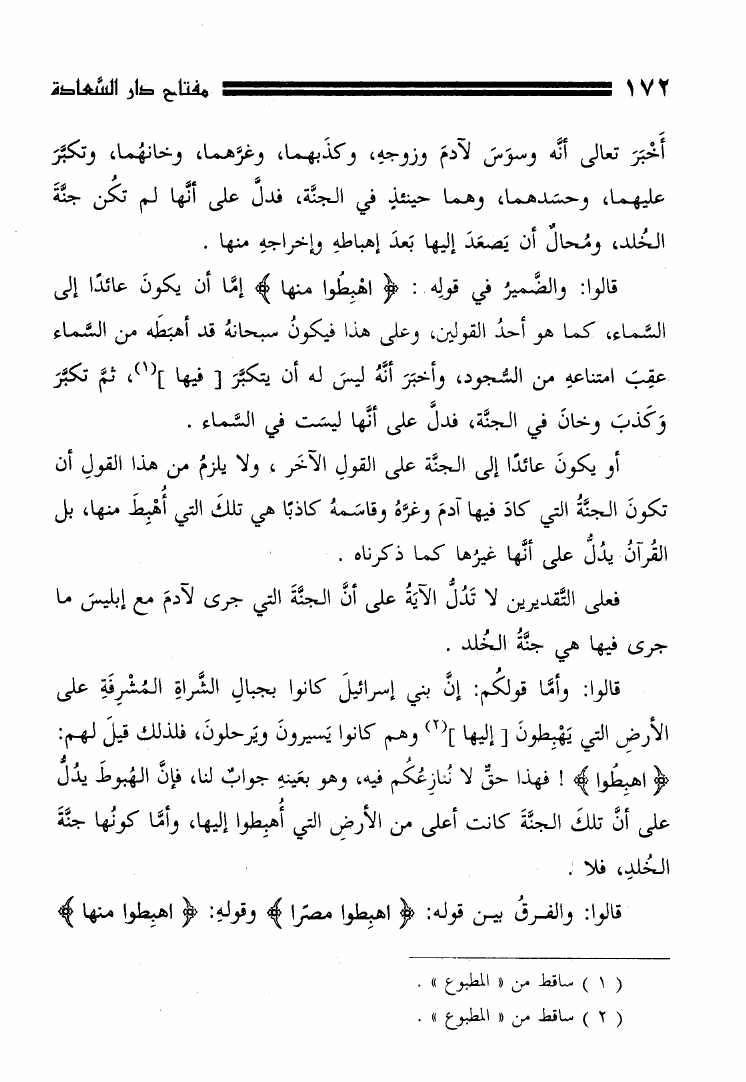 ١٧٢ مفتاح دار السَّعادة
أَخْبَرَ تعالى أنَّه وسوَسَ لآدمَ وزوجهِ، وكذَبهما، وغرَّهما، وخانهُما، وتكبَّرَ
عليهما، وحسَدهما، وهما حينئذٍ في الجنَّة، فدلَّ على أنَّها لم تكُن جنَّةَ
الخُلد، ومُحالٌ أن يَصعَدَ إليها بَعدَ إهباطهِ وإخراجهِ منها .
قالوا: والضَّميرُ في قولِه : ﴿ اهْبِطُوا منها ﴾ إمَّا أن يكونَ عائدًا إلى
السَّماء، كما هو أحدُ القولين، وعلى هذا فيكونُ سبحانهُ قد أهبَطَه من السَّماء
عقِبَ امتناعهِ من السُّجود، وأخبَرَ أنَّهُ ليسَ له أن يتكبَّرَ [ فيها ](١)، ثمَّ تكبَّرَ
وَكَذبَ وخانَ في الجنَّة، فدلَّ على أنَّها ليسَت في السَّماء .
أو يكونَ عائدًا إلى الجنَّة على القولِ الآخَر ، ولا يلزمُ من هذا القولِ أن
تكونَ الجنَّةُ التي كادَ فيها آدمَ وغرَّهُ وقاسَمهُ كاذبًا هي تلكَ التي أُهْبِطَ منها، بل
القُرآنُ يدُلُّ على أنَّها غيرُها كما ذكرناه .
فعلى التَّقديرين لا تَدُلُّ الآيَةُ على أنَّ الجنَّةَ التي جرى لآدمَ مع إبليسَ ما
جرى فيها هي جنَّةُ الخُلد .
قالوا: وأمَّا قولكُم: إنَّ بني إسرائيلَ كانوا بجبالِ الشَّراةِ المُشْرِفَةِ على
الأرضِ التي يَهْبِطونَ [ إليها ](٢) وهم كانوا يَسيرونَ ويَرحلونَ، فلذلك قيلَ لهم:
﴿ اهبِطُوا ﴾ ! فهذا حقٌّ لا نُنازِعُكُم فيه، وهو بعَينهِ جوابٌ لنا، فإنَّ الهُبوطَ يدُلُّ
على أنَّ تلكَ الجنَّةَ كانت أعلى من الأرضِ التي أُهبِطوا إليها، وأمَّا كونُها جنَّةَ
الخُلدِ، فلا .
قالوا: والفرقُ بين قوله: ﴿ اهبِطوا مصرًا ﴾ وقولهِ: ﴿ اهبِطوا منها ﴾
( ١ ) ساقط من « المطبوع » .
( ٢ ) ساقط من « المطبوع » .